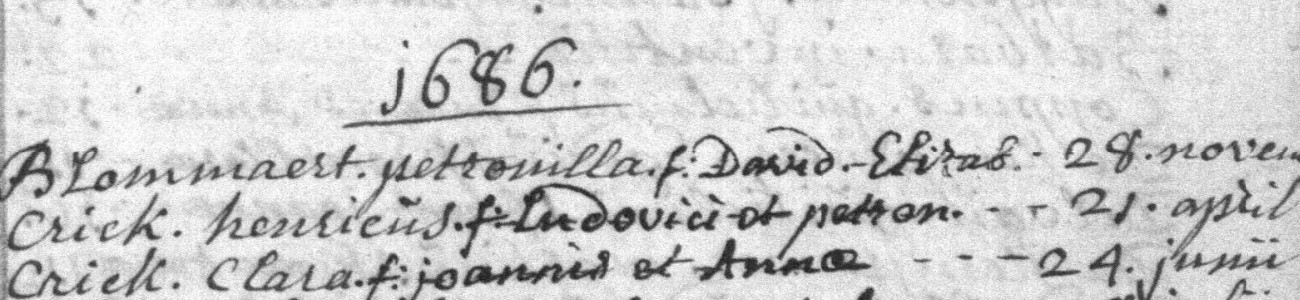 1686.
Blommaert. petronilla. f: David. - Elizab. - 28. novem
Crick. henricus. f: Ludovici et petron. - - 21. april
Crick. Clara. f: joannis et Annæ - - - 24. junii